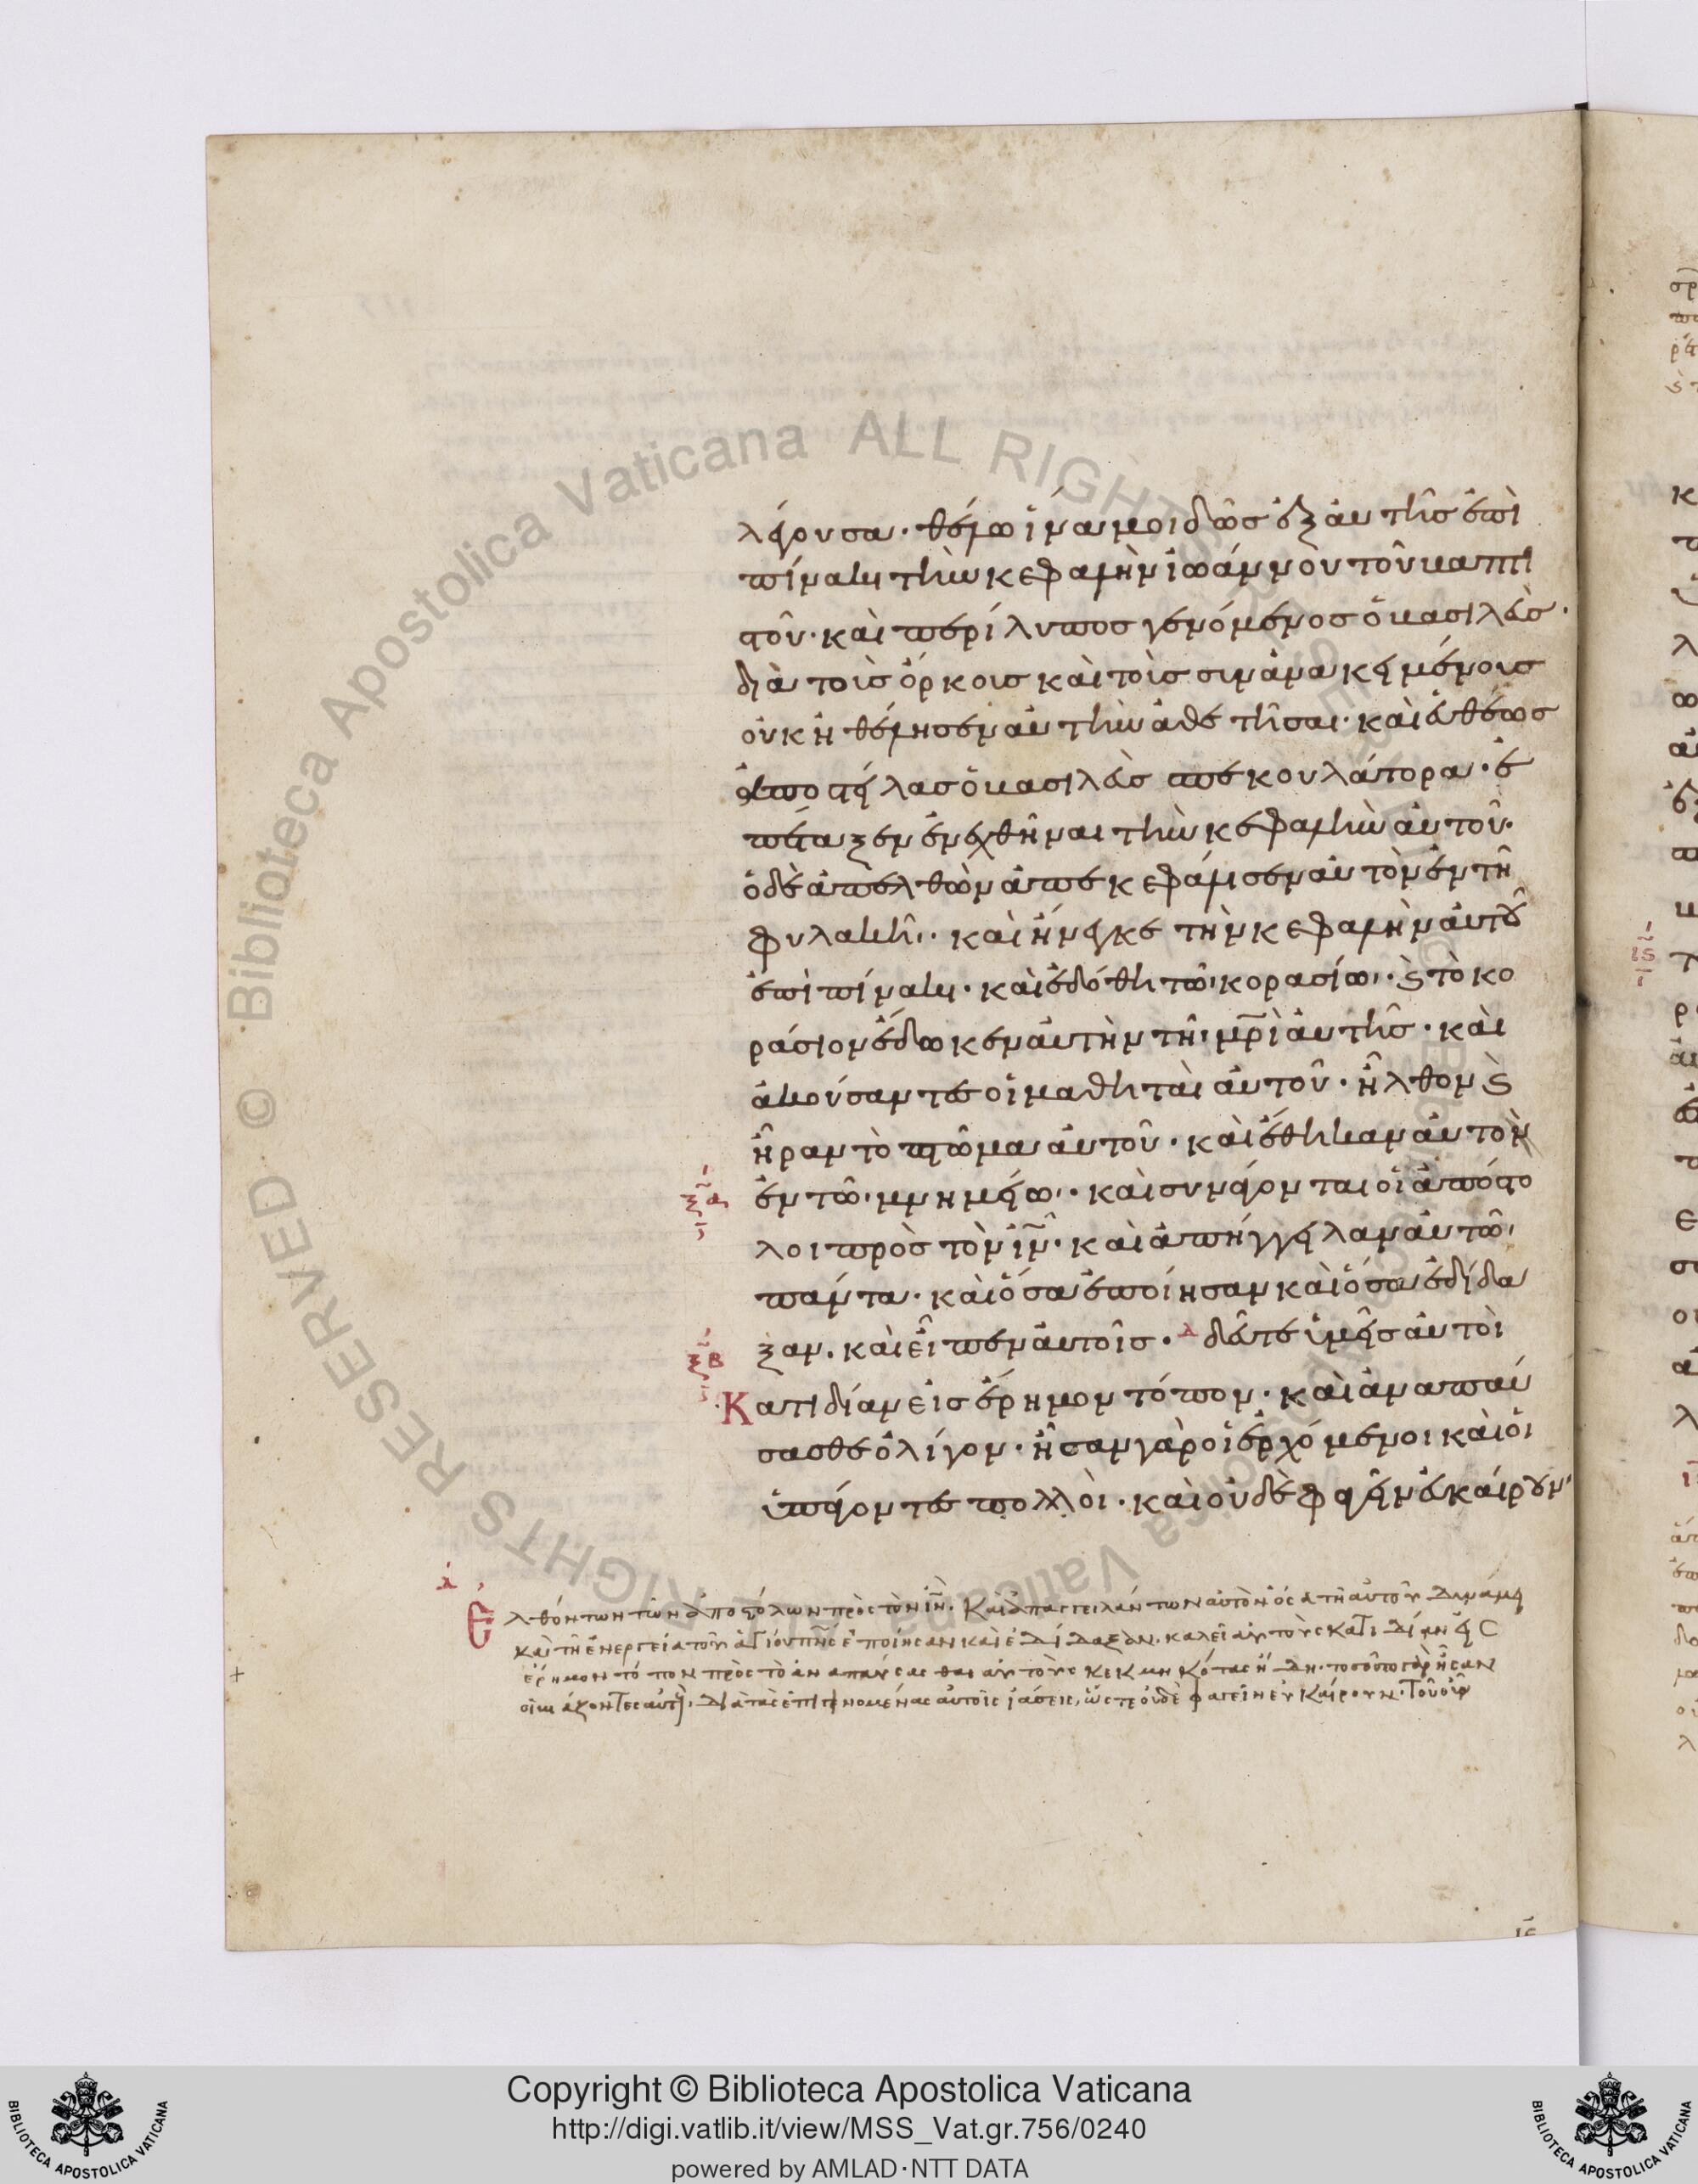 λέγουσα· θέλω ἵνα μοι δῶσ ἐξ αὐτῆσ ἐπὶ
πίνακι τὴν κεφαλὴν ἰωάννου τοῦ βαπτι
στοῦ· καὶ περίλυποσ γενόμενοσ ὁ βασιλεὺσ·
διὰ τοὺσ ὅρκουσ καὶ τοὺσ συνανακειμένουσ
οὐκ ἠθέλησεν αὐτὴν ἀθετῆσαι· καὶ εὐθέωσ
ἀποστείλασ ὁ βασιλεὺσ σπεκουλάτορα· ἐ
πέταξεν ἐνεχθῆναι τὴν κεφαλὴν αὐτοῦ·
ὁ δὲ ἀπελθὼν ἀπεκεφάλισεν αὐτὸν ἐν τῆ
φυλακῆι· καὶ ἤνεγκε τὴν κεφαλὴν αὐτοῦ
ἐπὶ πίνακι· καὶ ἐδόθη τῶι κορασίωι· ϗ τὸ κο
ράσιον ἔδωκεν αὐτὴν τῆι μρὶ αὐτῆσ· καὶ
ἀκούσαντεσ οἱ μαθηταὶ αὐτοῦ· ἦλθον ϗ
ἦραν τὸ πτῶμα αὐτοῦ· καὶ ἔθηκαν αὐτὸν
ξα ἐν τῶι μνημείωι· καὶ συνάγονται οἱ ἀπόστο
λοι πρὸσ τὸν ἰν· καὶ ἀπήγγειλαν αὐτῶι
πάντα· καὶ ὅσα ἐποίησαν καὶ ὅσα ἐδίδα
ξβ ξαν. καὶ εἶπεν αὐτοῖσ· λ δεῦτε ὑμεῖσ αὐτοὶ
Κατιδίαν εἰσ ἔρημον τόπον· καὶ ἀναπαύ
σασθε ὀλίγον· ἦσαν γὰρ οἱ ἐρχόμενοι καὶ οἱ
ὑπάγοντεσ πολλοὶ· καὶ οὐδὲ φαγεῖν εὐκαίρουν·
λ Ἐλθόντων τῶν ἀποστόλων πρὸς τὸν ἰν. Καὶ ἀπαγγειλάντων αὐτὸν ὅσα τῆ αὐτοῦ δυνάμει
καὶ τῆ ἐνεργεία τοῦ ἁγίου πνς ἐποίησαν καὶ ἐδίδαξαν. καλεῖ αὐτοὺς κατιδίαν εἰς
ἔρημον τόπον πρὸς τὸ ἀναπαύσασθαι αὐτοὺς κεκμηκότας ἤδη. τοσοῦτοι γὰρ ἦσαν
διὰ τὰς ἐπιγινομένας αὐτοῖς ἰάσεις, ὥστε οὐδὲ φαγεῖν εὐκαίρουν. Τοῦ οὖν
ιε
Copyright © Biblioteca Apostolica Vaticana
http://digi.vatlib.it/view/MSS_Vat.gr.756/0240
powered by AMLAD·NTT DATA